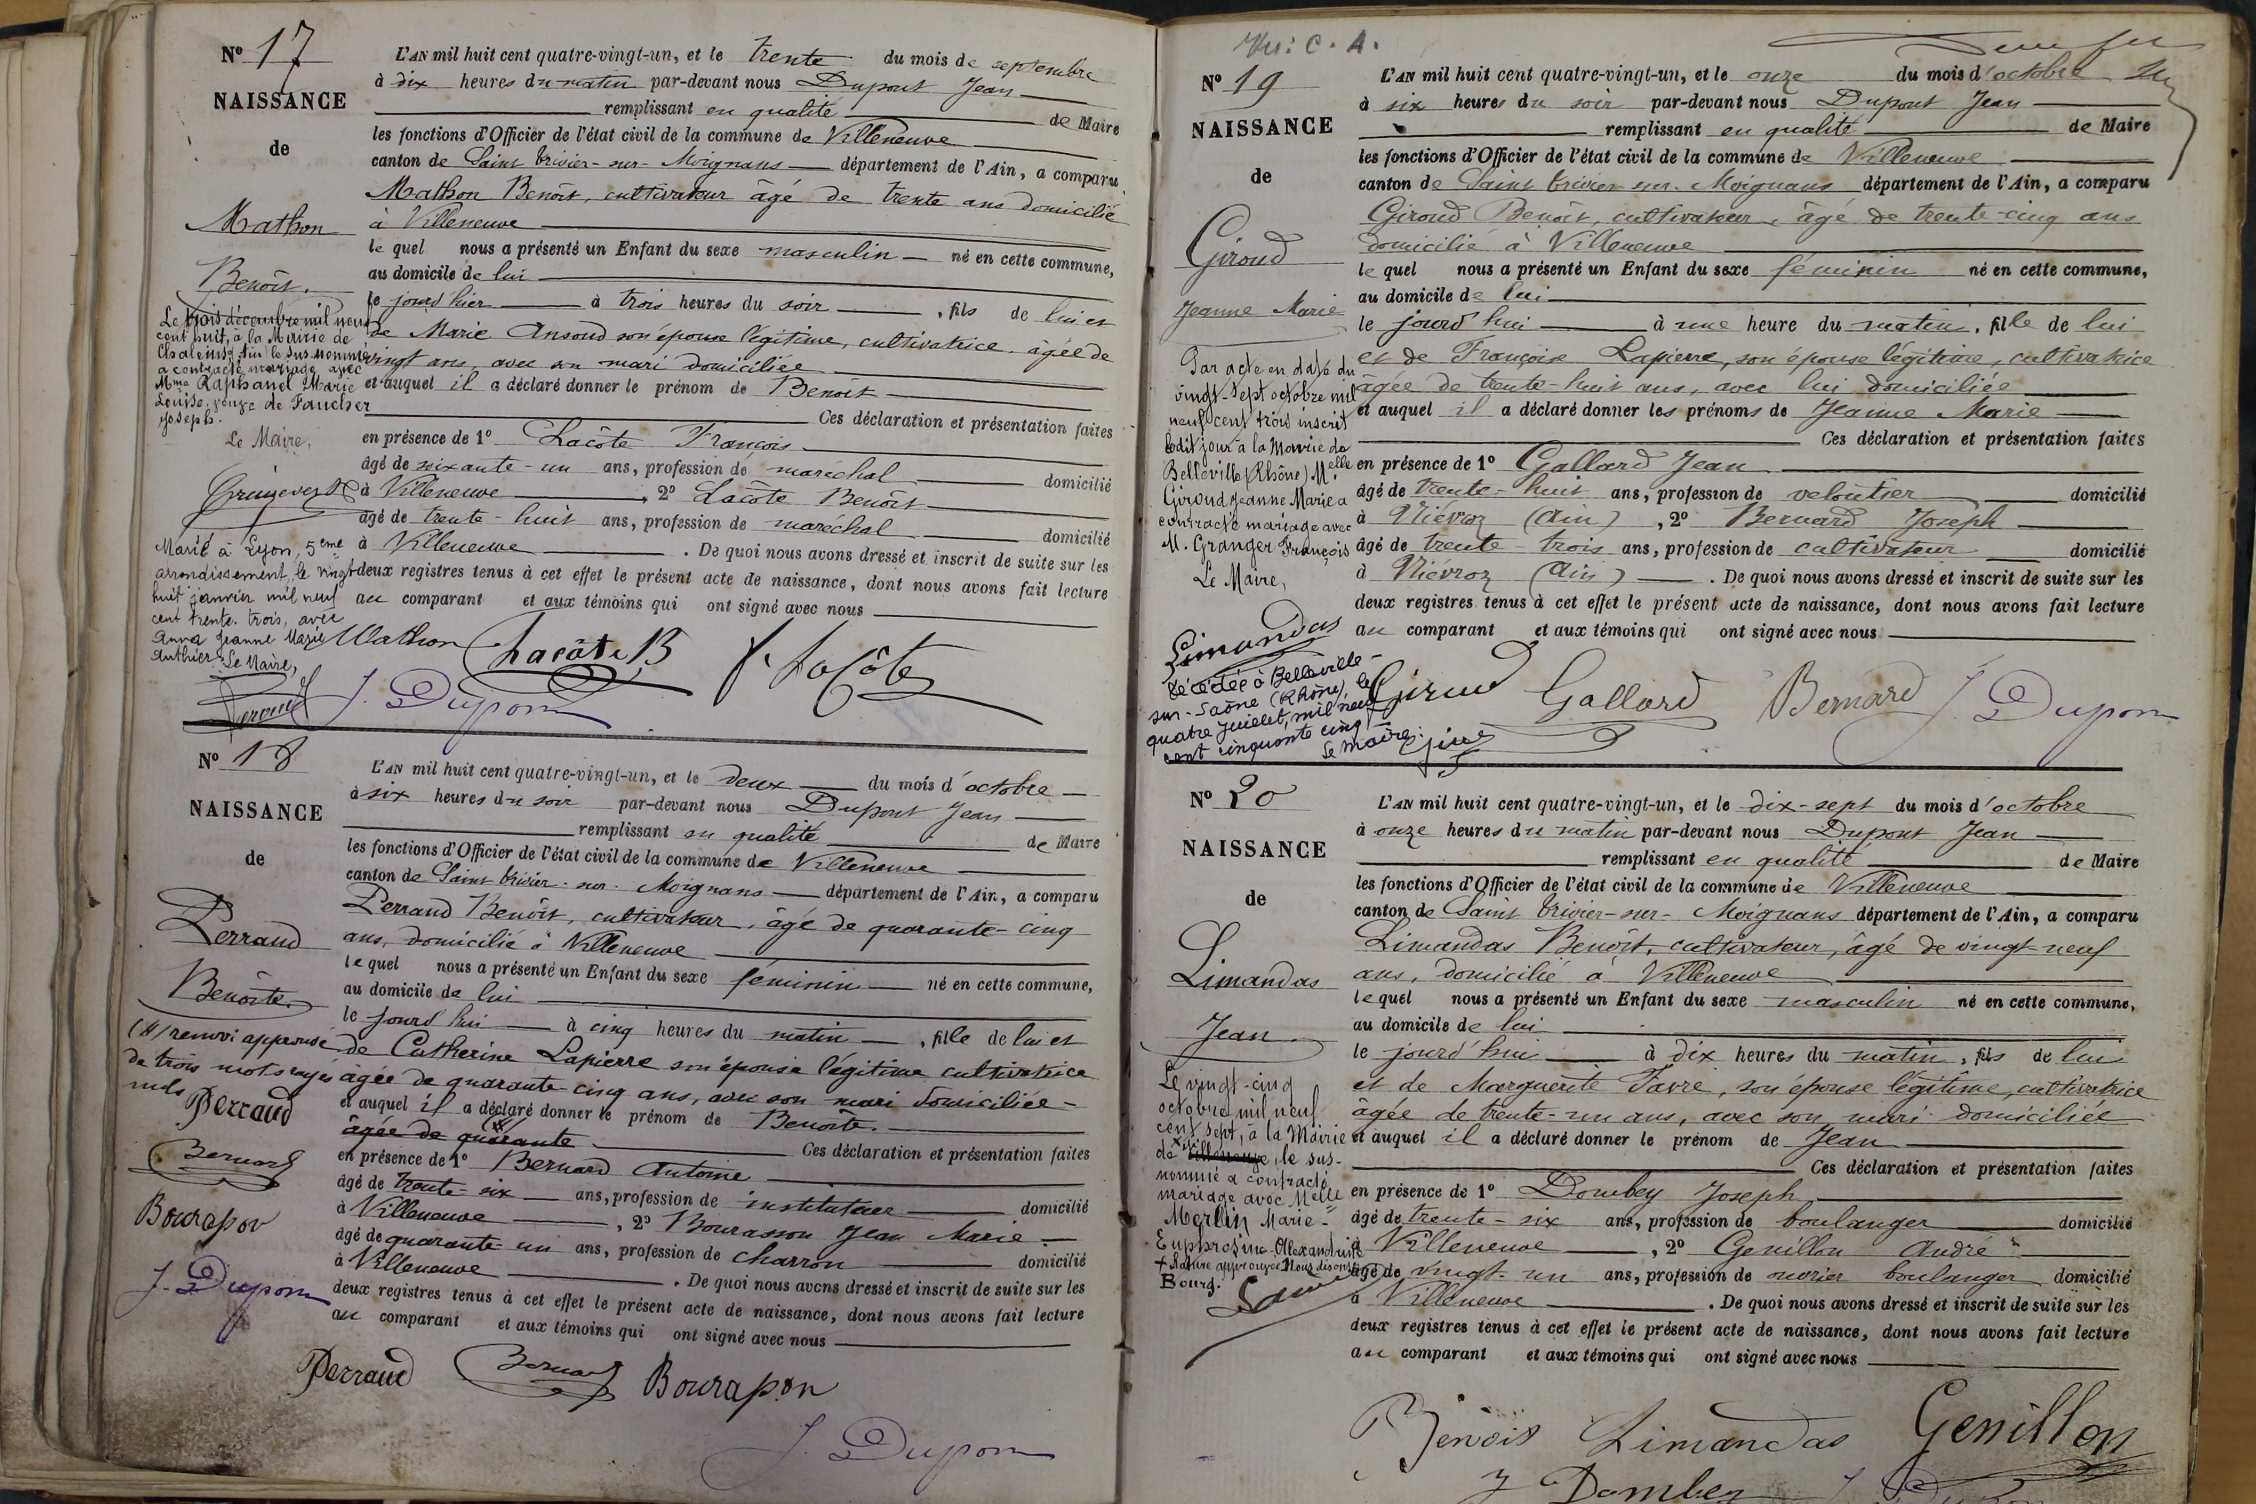 N° 17
NAISSANCE
de
Mathon
Benoît.
Le trois décembre mil neuf
cent huit, à la Mairie de
(Ain) le sus nommé
a contracté mariage avec
Mme Raphanel Marie
Louise, veuve de Faucher
Joseph.
Le Maire,
Marié à Lyon, 5eme
arrondissement, le vingt
huit janvier mil neuf
cent trente-trois, avec
Anna Jeanne Marie
Authier. Le Maire,
L'AN mil huit cent quatre-vingt-un, et le trente du mois de septembre
à dix heures du matin par-devant nous Dupont Jean
remplissant en qualité de Maire
les fonctions d'Officier de l'état civil de la commune de Villeneuve
canton de Saint trivier-sur-Moignans département de l'Ain, a comparu
Mathon Benoît, cultivateur âgé de trente ans domicilié
à Villeneuve
le quel nous a présenté un Enfant du sexe masculin né en cette commune,
au domicile de lui
le jourd'hier à trois heures du soir, fils de lui et
de Marie Ansoud son épouse légitime, cultivatrice, âgée de
vingt ans, avec son mari domiciliée
et auquel il a déclaré donner le prénom de Benoît
Ces déclaration et présentation faites
en présence de 1° Lacôte François
âgé de soixante-un ans, profession de maréchal domicilié
à Villeneuve, 2° Lacôte Benoît
âgé de trente-huit ans, profession de maréchal domicilié
à Villeneuve. De quoi nous avons dressé et inscrit de suite sur les
deux registres tenus à cet effet le présent acte de naissance, dont nous avons fait lecture
au comparant et aux témoins qui ont signé avec nous
Mathon Lacôte B F. Lacôte
J. Dupont
N° 18
NAISSANCE
de
Perraud
Benoîte.
(A) renvoi approuvé
de trois mots rayés
nuls
Perraud
Bernard
Bourasson
J. Dupont
L'AN mil huit cent quatre-vingt-un, et le deux du mois d'octobre
à six heures du soir par-devant nous Dupont Jean
remplissant en qualité de Maire
les fonctions d'Officier de l'état civil de la commune de Villeneuve
canton de Saint trivier-sur-Moignans département de l'Ain, a comparu
Perraud Benoît, cultivateur, âgé de quarante-cinq
ans, domicilié à Villeneuve
le quel nous a présenté un Enfant du sexe féminin né en cette commune,
au domicile de lui
le jourd'hui à cinq heures du matin, fille de lui et
de Catherine Lapierre son épouse légitime cultivatrice
âgée de quarante-cinq ans, avec son mari domiciliée
et auquel il a déclaré donner le prénom de Benoîte.
âgée de quarante
Ces déclaration et présentation faites
en présence de 1° Bernard Antoine
âgé de trente-six ans, profession de instituteur domicilié
à Villeneuve, 2° Bourasson Jean Marie
âgé de quarante-un ans, profession de charron domicilié
à Villeneuve. De quoi nous avons dressé et inscrit de suite sur les
deux registres tenus à cet effet le présent acte de naissance, dont nous avons fait lecture
au comparant et aux témoins qui ont signé avec nous
Perraud Bernard Bourasson
J. Dupont
Vu: C. A.
N° 19
NAISSANCE
de
Giroud
Jeanne Marie
Par acte en date du
vingt-sept octobre mil
neuf cent trois inscrit
ledit jour à la Mairie de
Belleville (Rhône) Melle
Giroud Jeanne Marie a
contracté mariage avec
M. Granger François
Le Maire,
Limandas
Décédée à Belleville-
sur-Saône (Rhône), le
quatre Juillet, mil neuf
cent cinquante cinq
Le maire.
L'AN mil huit cent quatre-vingt-un, et le onze du mois d'octobre
à six heures du soir par-devant nous Dupont Jean
remplissant en qualité de Maire
les fonctions d'Officier de l'état civil de la commune de Villeneuve
canton de Saint trivier-sur-Moignans département de l'Ain, a comparu
Giroud Benoît, cultivateur, âgé de trente-cinq ans
domicilié à Villeneuve
le quel nous a présenté un Enfant du sexe féminin né en cette commune,
au domicile de lui
le jourd'hui à une heure du matin, fille de lui
et de Françoise Lapierre, son épouse légitime, cultivatrice
âgée de trente-huit ans, avec lui domiciliée
et auquel il a déclaré donner les prénoms de Jeanne Marie
Ces déclaration et présentation faites
en présence de 1° Gallard Jean
âgé de trente-huit ans, profession de veloutier domicilié
à Niévroz (Ain), 2° Bernard Joseph
âgé de trente-trois ans, profession de cultivateur domicilié
à Niévroz (Ain). De quoi nous avons dressé et inscrit de suite sur les
deux registres tenus à cet effet le présent acte de naissance, dont nous avons fait lecture
au comparant et aux témoins qui ont signé avec nous
Giroud Gallard Bernard J. Dupont
N° 20
NAISSANCE
de
Limandas
Jean
Le vingt-cinq
octobre mil neuf
cent sept, à la Mairie
de Villeneuve, le sus-
nommé a contracté
mariage avec Melle
Merlin Marie-
Euphrosine-Alexandrine
+ Rature approuvée Nous disons
Bourg.
L'AN mil huit cent quatre-vingt-un, et le dix-sept du mois d'octobre
à onze heures du matin par-devant nous Dupont Jean
remplissant en qualité de Maire
les fonctions d'Officier de l'état civil de la commune de Villeneuve
canton de Saint trivier-sur-Moignans département de l'Ain, a comparu
Limandas Benoît, cultivateur, âgé de vingt-neuf
ans, domicilié à Villeneuve
le quel nous a présenté un Enfant du sexe masculin né en cette commune,
au domicile de lui
le jourd'hui à dix heures du matin, fils de lui
et de Marguerite Favre, son épouse légitime, cultivatrice
âgée de trente-un ans, avec son mari domiciliée
et auquel il a déclaré donner le prénom de Jean
Ces déclaration et présentation faites
en présence de 1° Dombey Joseph
âgé de trente-six ans, profession de boulanger domicilié
à Villeneuve, 2° Genillon André
âgé de vingt-un ans, profession de ouvrier boulanger domicilié
à Villeneuve. De quoi nous avons dressé et inscrit de suite sur les
deux registres tenus à cet effet le présent acte de naissance, dont nous avons fait lecture
au comparant et aux témoins qui ont signé avec nous
Benoit Limandas Genillon
J Dombey